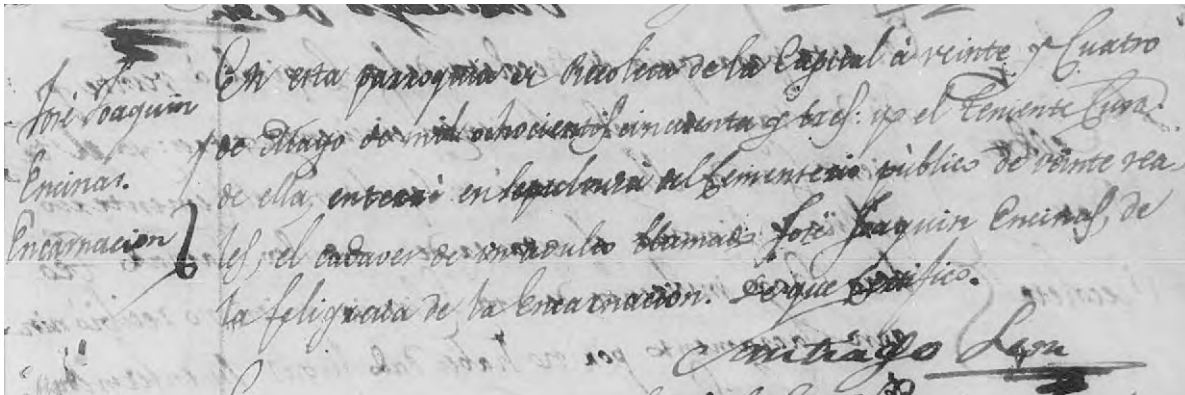 José Joaquin
Encinas.
Encarnacion
En esta parroquia de Recoleca de la Capital à veinte y Cuatro
de Mayo de mil ochocientos cincuenta y tres: yo el Teniente Cura
de ella, enterré en sepultura del Cementerio público de veinte rea-
les, el cadaver de un adulto llamado José Joaquin Encinas, de
la feligrecia de la Encarnación. De que certifico.
Santiago Leon